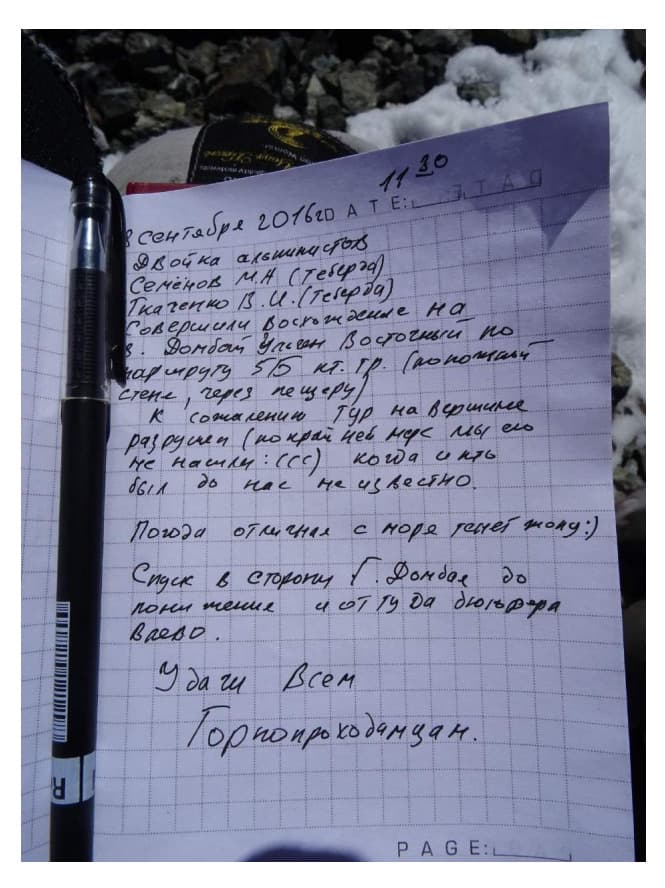 11 30
8 сентября 2016г DATE:
Двойка альпинистов
Семёнов М.А (Теберда)
Ткаченко В.И. (Теберда)
Совершили восхождение на
в. Домбай Ульген Восточный по
маршруту 5Б кт. тр. (по южной
стене, через пещеру)
К сожалению тур на вершине
разрушен (по крайней мере мы его
не нашли :((() когда и кто
был до нас не известно.
Погода отличная с моря тенет :)
Спуск в сторону Г. Домбая до
понижения и от туда дюльфера
влево.
Удачи Всем
Горнопроходимцам.
PAGE: